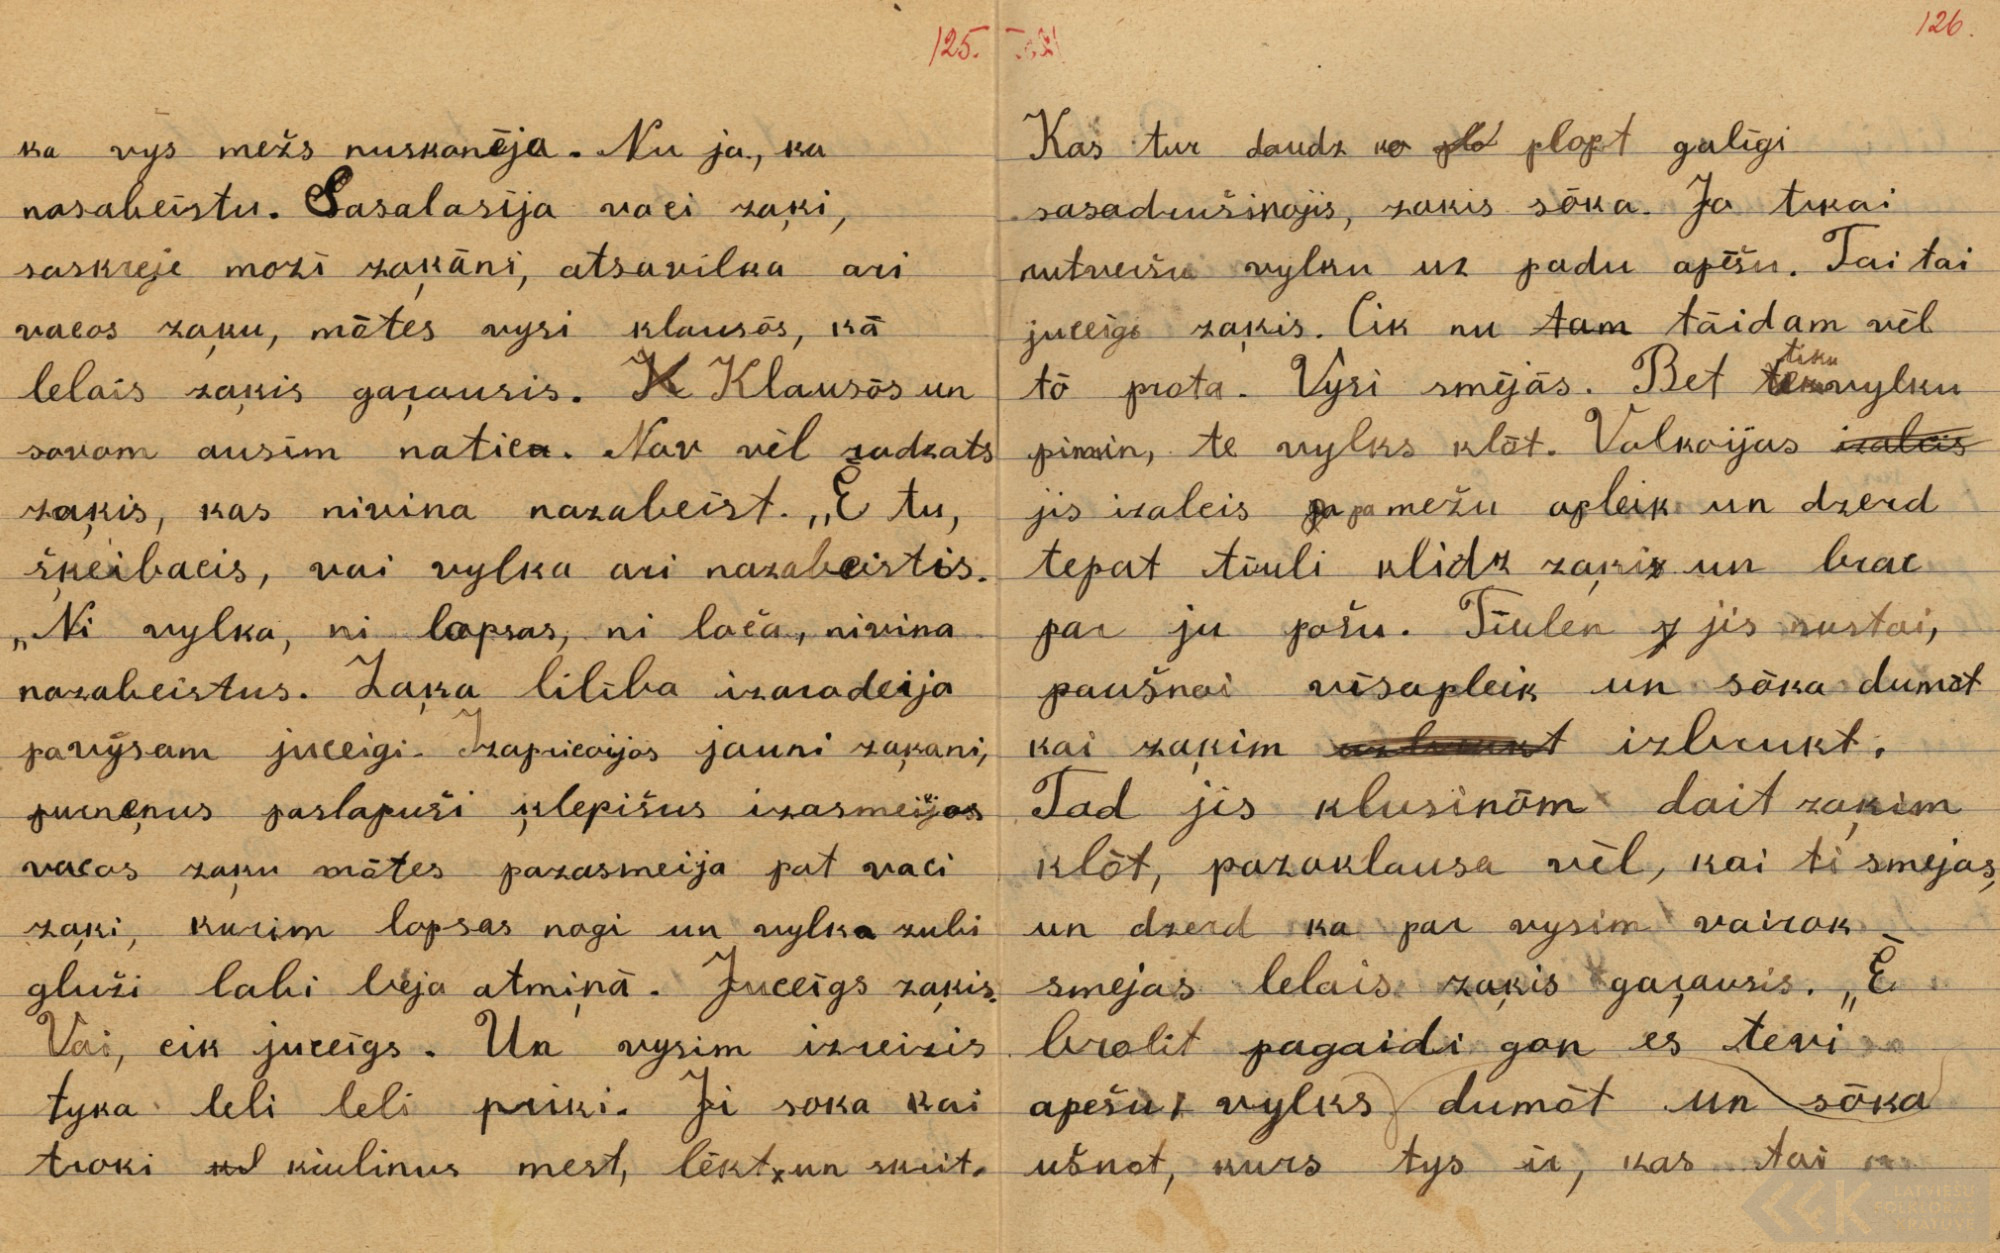 125.
ka vys mežs nuskanēja. Nu ja, ka
nasabeistu. Sasalasīja vaci zaķi,
saskreje mozi zaķāni, atsavilka ari
vacos zaķu, mōtes vysi klausōs, kā
lelais zaķis gaŗausis. K Klausōs un
savom ausim natica. Nav vēl radzats
zaķis, kas nivina nazabeist. „Ē tu,
šķeibacis, vai vylka ari nazabeistis.
„Ni vylka, ni lapsas, ni lača, nivina
nazabeistus. Zaķa lilība izaradeija
pavysam juceigi. Izapricoijos jauni zaķani,
purneņus paslapuši ķlepišus izasmeijos
vacos zaķu mōtes pazasmeija pat vaci
zaķi, kurim lopsas nogi un vylka zubi
gluži labi beja atmiņā. Juceīgs zaķis.
Vai, cik juceīgs. Un vysim izreizis
tyka leli leli prīki. Ji soka kai
troki kiulinus mest, lēkt, un skrit.
126.
Kas tur daudz ko plo plopt galīgi
sasadrušinojis, zakis sōka. Ja tikai
nutveršu vylku uz padu apēšu. Tai tai
juceīgi zaķis. Cik nu tam tāidam vēl
tō prota. Vysi smējās. Bet tiku vylku
pimin, te vylks klōt. Valkoijas izaleis
jis izaleis pa mežu apleik un dzerd
tepat tiuli klidz zaķis un brac
par ju pošu. Tiulen jis nustai,
paušnoi visapleik un sōka dumōt
kai zaķim izbrukt.
Tad jis klusinōm dait zaķim
klōt, pazaklausa vēl, kai ti smejas,
un dzerd ka par vysim vairok
smejas lelais zaķis gaŗausis. „Ē
brolit pagaidi gon es tevi
apešu, vylks dumōt un sōka
ušnot, kurs tys ir, kas tai
LATVIEŠU FOLKLORAS KRĀTUVE